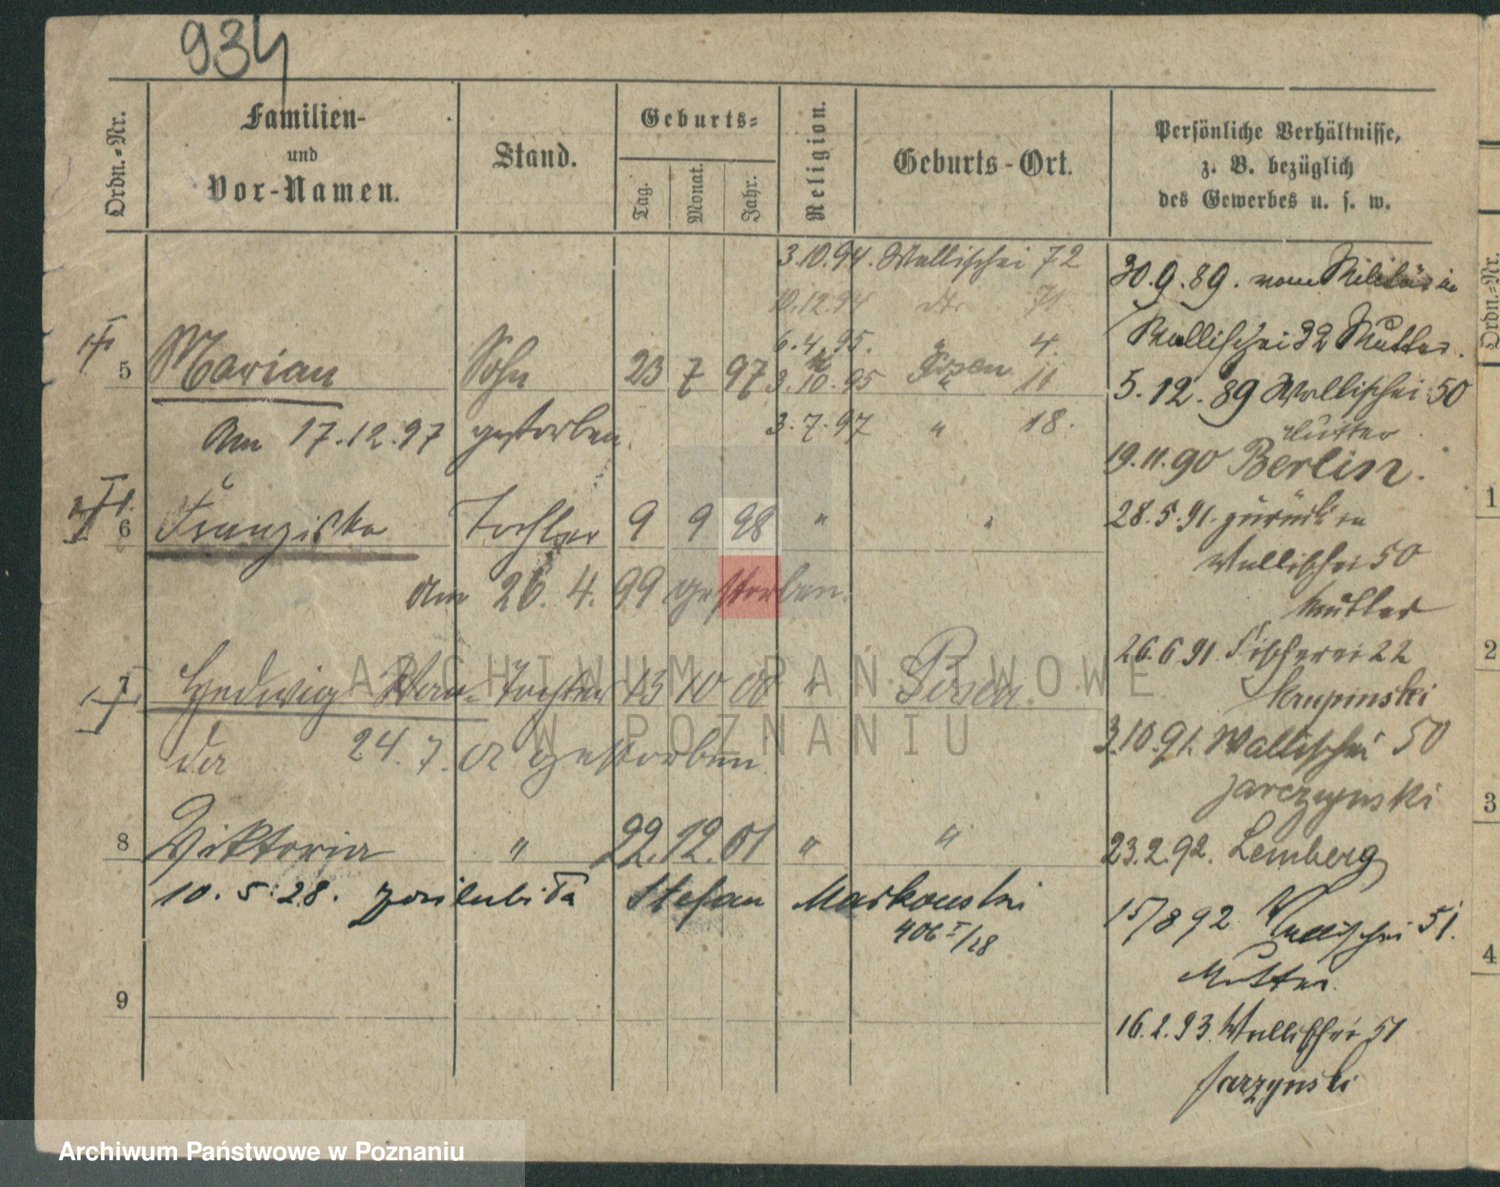 934
Ordn.-Nr.
Familien-
und
Vor-Namen.
Stand.
Geburts=
Tag.
Monat.
Jahr.
Religion.
Geburts-Ort.
Persönliche Verhältnisse,
z. B. bezüglich
des Gewerbes u. s. w.
3.10.94. Wallischei 72
10.12.94 dto 71
6.4.95. " 4.
3.10.95 " 11
3.7.97 " 18.
5 Marian Sohn 23 7 97 Posen
Am 17.12.97 gestorben.
6 Franziska Tochter 9 9 98 " "
Am 26.4.99 gestorben.
7 Hedwig Wan- Tochter 13 10 00 " Posen.
da 24.7.02 gestorben
8 Viktoria " 22.12.01 " "
10.5.28. poślubiła Stefan Markowski
406 I/28
9
30.9.89. vom Militär in
Wallischei 32 Mutter.
5.12.89 Wallischei 50
Mutter
19.11.90 Berlin.
28.5.91. zurück in
Wallischei 50
Mutter
26.6.91. Fischerei 22
Skupinski
3.10.91. Wallischei 50
Jarczynski
23.2.92. Lemberg
15/8 92. Wallischei 51.
Mutter.
16.2.93. Wallischei 51
Jarzynski
Ordn.-Nr.
1
2
3
4
ARCHIWUM PAŃSTWOWE
W POZNANIU
Archiwum Państwowe w Poznaniu